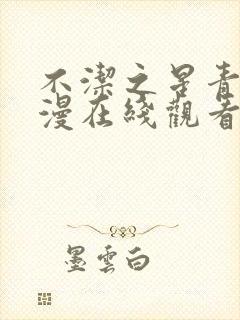 不潔之晷青
漫在綫觀看
墨雲白